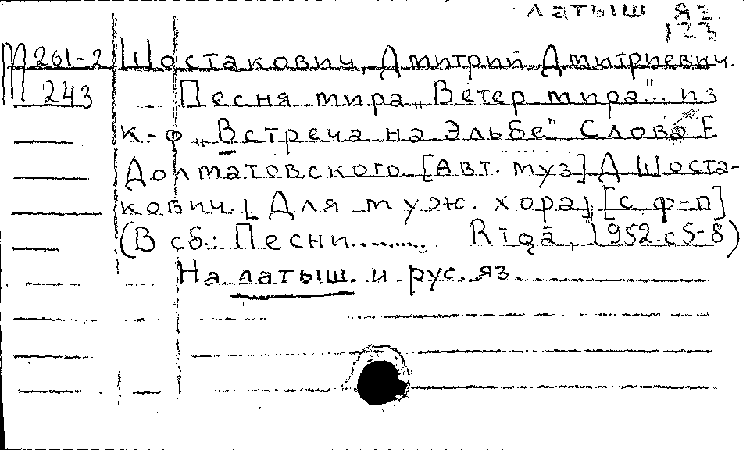 латыш яз
123
М 261-2 Шостакович, Дмитрий Дмитриевич.
243 Песня мира „Ветер мира"... из
к-ф „Встреча на Эльбе" Слова Е
Долматовского [Авт. муз] Д Шоста-
кович. [Для муж. хора] [с ф-п]
(В сб: Песни......... Rīgā, 1952 с 5-8)
На латыш. и рус. яз.